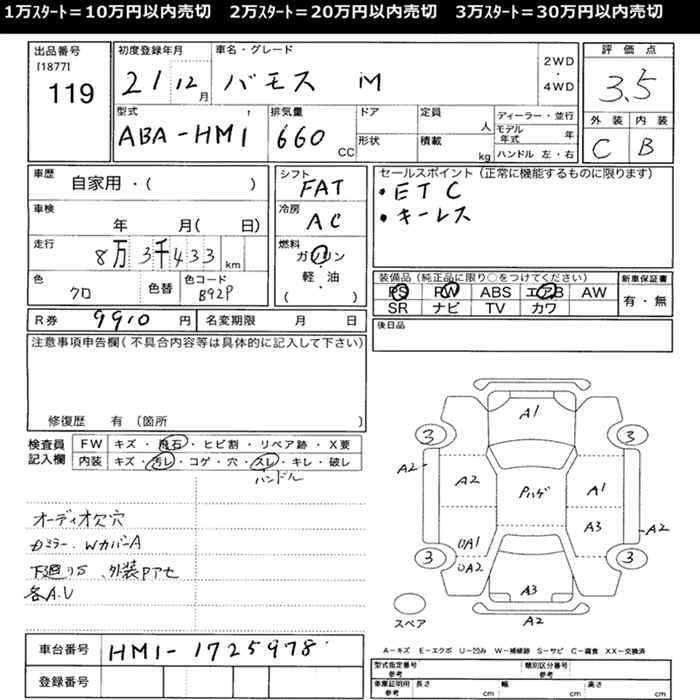 1万ｽﾀｰﾄ＝10万円以内売切　2万ｽﾀｰﾄ＝20万円以内売切　3万ｽﾀｰﾄ＝30万円以内売切
出品番号 [1877] 119
初度登録年月 21 12月
車名・グレード バモス M
2WD・4WD
評価点 3.5
型式 ABA-HM1
排気量 660 CC
ドア
形状
定員 人
積載 kg
ディーラー・並行
モデル年式 年
ハンドル 左・右
外装 C
内装 B
車歴 自家用・( )
車検 年 月( 日)
走行 8万3千433 km
色 クロ
色替
色コード B92P
シフト FAT
冷房 AC
燃料 ガソリン・軽・油 ( )
セールスポイント(正常に機能するものに限ります)
・ETC
・キーレス
装備品(純正品に限り○をつけてください)
PS PW ABS エアB AW
SR ナビ TV カワ
新車保証書 有・無
後日品
R券 9910 円
名変期限 月 日
注意事項申告欄(不具合内容等は具体的に記入して下さい)
修復歴 有 (箇所
検査員記入欄
FW キズ・飛石・ヒビ割・リペア跡・X要
内装 キズ・汚レ・コゲ・穴・スレ・キレ・破レ
ハンドル
オーディオ欠穴
Dミラー、WカバーA
下廻りS、外装Pアセ
各A.U
A1
3 3
A2 A2 Pハゲ A1
A3 A2
UA1
UA2
3 3
A3
A2
スペア
車台番号 HM1-1725978
登録番号
A－キズ E－エクボ U－凹み W－補修跡 S－サビ C－腐食 XX－交換済
型式指定番号 参考
類別区分番号 参考
車庫証明用 参考 長さ cm 幅 cm 高さ cm